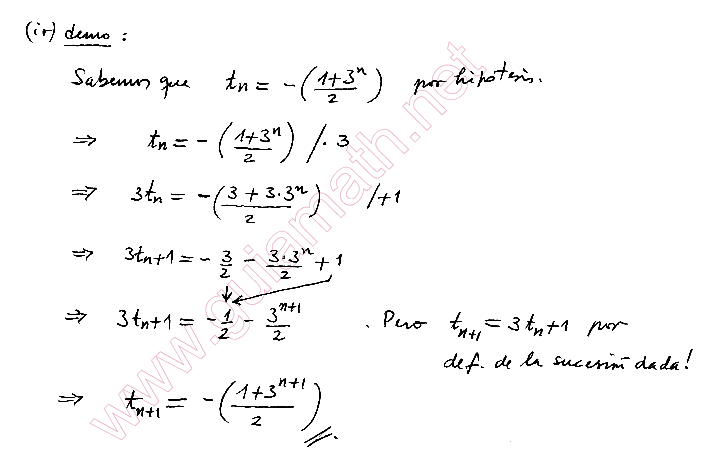 (iv) demo :
Sabemos que tn = -((1+3^n)/2) por hipótesis.
⇒ tn = -((1+3^n)/2) /· 3
⇒ 3tn = -((3 + 3·3^n)/2) /+1
⇒ 3tn+1 = - 3/2 - (3·3^n)/2 + 1
⇒ 3tn+1 = - 1/2 - 3^(n+1)/2 . Pero t_(n+1) = 3tn+1 por
def. de la sucesión dada!
⇒ t_(n+1) = -((1+3^(n+1))/2) //.
www.guiamath.net